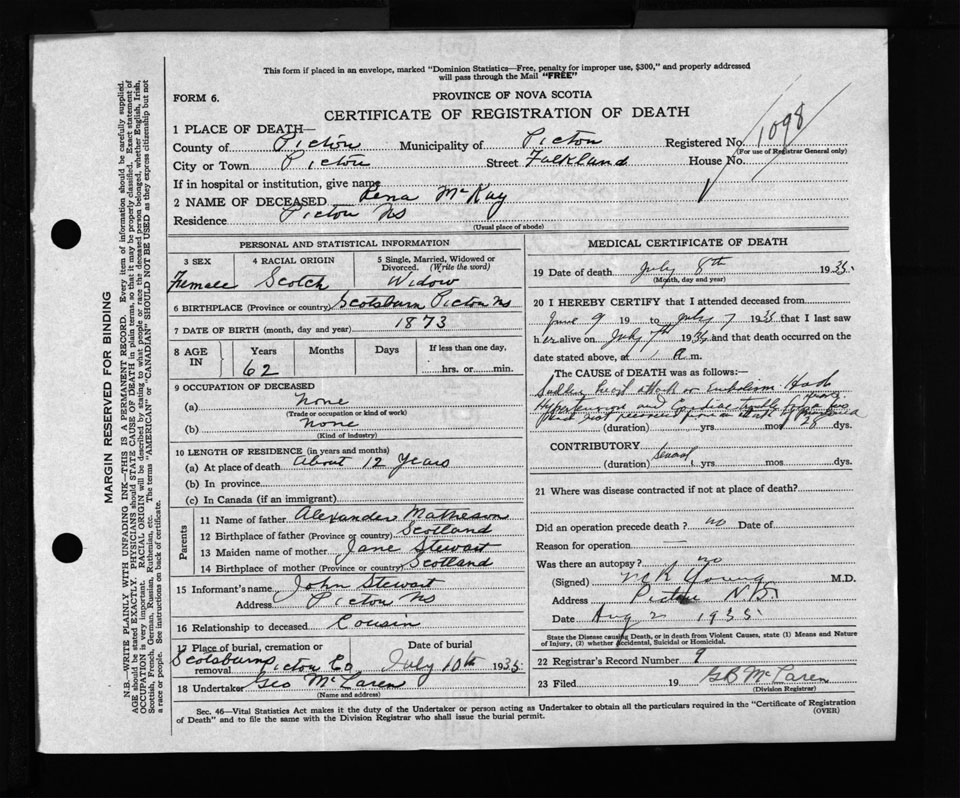 This form if placed in an envelope, marked "Dominion Statistics—Free, penalty for improper use, $300," and properly addressed
will pass through the Mail "FREE"
FORM 6.
PROVINCE OF NOVA SCOTIA
CERTIFICATE OF REGISTRATION OF DEATH
1 PLACE OF DEATH—
County of Pictou Municipality of Pictou Registered No. 1098
(For use of Registrar General only)
City or Town Pictou Street Falkland House No.
If in hospital or institution, give name
2 NAME OF DECEASED Rena McKay
Residence Pictou NS
(Usual place of abode)
PERSONAL AND STATISTICAL INFORMATION
3 SEX 4 RACIAL ORIGIN 5 Single, Married, Widowed or Divorced. (Write the word)
Female Scotch Widow
6 BIRTHPLACE (Province or country) Scotsburn Pictou NS
7 DATE OF BIRTH (month, day and year) 1873
8 AGE IN Years Months Days If less than one day,
62 hrs. or min.
9 OCCUPATION OF DECEASED
(a) None
(Trade or occupation or kind of work)
(b) None
(Kind of industry)
10 LENGTH OF RESIDENCE (in years and months)
(a) At place of death About 12 Years
(b) In province
(c) In Canada (if an immigrant)
Parents
11 Name of father Alexander Matheson
12 Birthplace of father (Province or country) Scotland
13 Maiden name of mother Jane Stewart
14 Birthplace of mother (Province or country) Scotland
15 Informant's name John Stewart
Address Pictou NS
16 Relationship to deceased Cousin
17 Place of burial, cremation or removal Scotsburn Pictou Co Date of burial July 10th 1935
18 Undertaker Geo McLaren
(Name and address)
MEDICAL CERTIFICATE OF DEATH
19 Date of death July 8th 1935
(Month, day and year)
20 I HEREBY CERTIFY that I attended deceased from
June 9 19 to July 7 1935 that I last saw
her alive on July 7th 1935 and that death occurred on the
date stated above, at 1 a.m.
The CAUSE of DEATH was as follows:—
heart attack or Embolism Had
(duration) yrs mos 28 dys.
CONTRIBUTORY
(duration) Several yrs mos dys.
21 Where was disease contracted if not at place of death?
Did an operation precede death? no Date of
Reason for operation —
Was there an autopsy? no
(Signed) Young M.D.
Address Pictou N.S.
Date Aug 2 1935
State the Disease causing Death, or in death from Violent Causes, state (1) Means and Nature
of Injury, (2) whether Accidental, Suicidal or Homicidal.
22 Registrar's Record Number 9
23 Filed 19 GB McLaren
(Division Registrar)
Sec. 46—Vital Statistics Act makes it the duty of the Undertaker or person acting as Undertaker to obtain all the particulars required in the "Certificate of Registration
of Death" and to file the same with the Division Registrar who shall issue the burial permit. (OVER)
MARGIN RESERVED FOR BINDING
N.B.—WRITE PLAINLY WITH UNFADING INK—THIS IS A PERMANENT RECORD. Every item of information should be carefully supplied.
AGE should be stated EXACTLY. PHYSICIANS should STATE CAUSE OF DEATH in plain terms, so that it may be properly classified. Exact statement of
OCCUPATION is very important. RACIAL ORIGIN will be described by stating to what people or race the deceased person belonged, whether English, Irish,
Scottish, French, German, Russian, Ruthenian, etc. The terms "AMERICAN" or "CANADIAN" SHOULD NOT BE USED as they express citizenship but not
a race or people. See instructions on back of certificate.